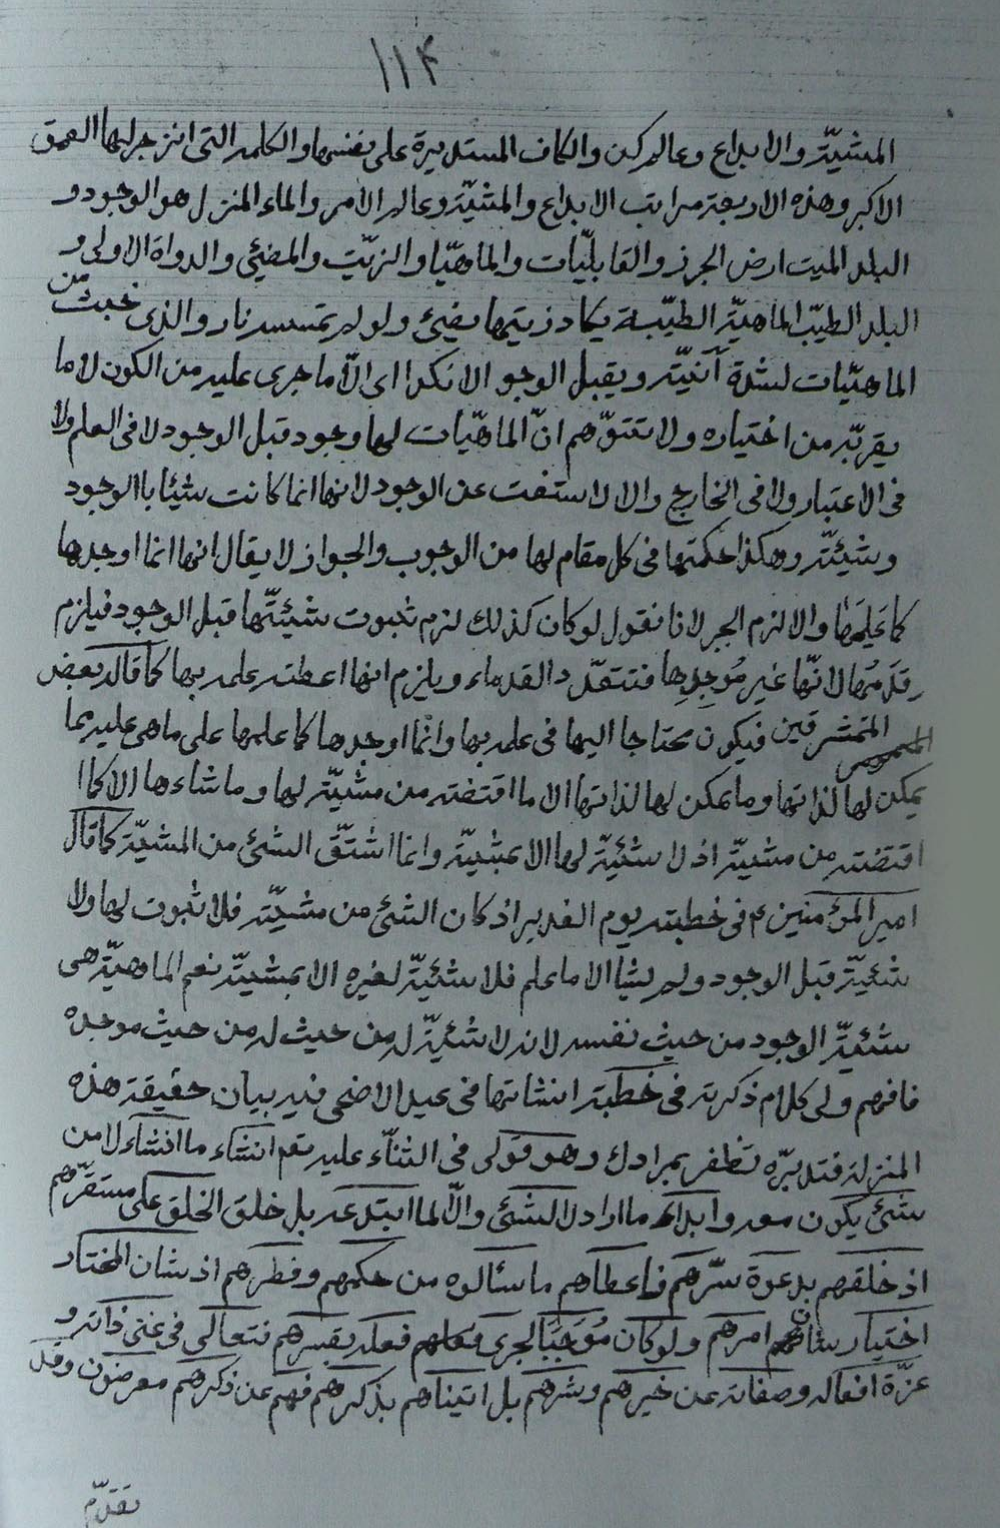 ١١٤
المشيّة والابداع وعالم كن والكاف المستديرة على نفسها والكلمة التى انزجر لها العمق
الاكبر وهذه الاربعة مراتب الابداع والمشيّة وعالم الامر والماء المنزل هو الوجود و
البلد الميت ارض الجرز والقابليّات والماهيّا والزيّت والمضيئ والدواة الاولى و
البلد الطيّب الماهيّة الطيّبة يكاد زيتها يضيئ ولو لم تمسسه نار والذى خبث من
الماهيّات لشدة انيّته ويقبل الوجو الا نكدا اى الّا ما جرى عليه من الكون لا ما
يقربّه من اختياره ولا تتوّهم انّ الماهيّات لها وجود قبل الوجود لا فى العلم ولا
فى الاعتبار ولا فى الخارج والا لاستغنت عن الوجود لانها انما كانت شيئا باالوجود
وشيئيّته وهكذا حكمتها فى كل مقام لها من الوجوب والجواز لا يقال انها انما اوجدها
كما علمها والا لزم الجبر لانا نقول لو كان كذلك لزم ثبوت شيئيّتها قبل الوجود فيلزم
قدمها لانّها غير مُوجِدِها فتتعّدد القدماء ويلزم انها اعطته علمه بها كما قاله بعض
المتمشرقين فيكون محتاجا اليها فى علمه بها وانّما اوجدها كما علمها على ما هى عليه بما
يمكن لها لذاتها وما يمكن لها لذاتها الا ما اقتضته من مشيّته لها وما شاءها الا كما
اقتضته من مشيّته اذ لا شيئيّة لها الا بمشيّته وانما اشتّق الشئ من المشيّة كما قال
امير المؤمنين ع فى خطبته يوم الغدير اذ كان الشئ من مشيّته فلا ثبوت لها ولا
شيئيّة قبل الوجود ولم يشأ الا ما علم فلا شيئيّة لغيره الا بمشيّته نعم الماهيّة هى
شيئيّة الوجود من حيث نفسه لانه لا شيئيّة له من حيث له من حيث موجده
فافهم ولى كلام ذكرته فى خطبة انشاتها فى عيد الاضحى فيه بيان حقيقة هذه
المنزلة فتدبّره تظفر بمرادك وهو قولى فى الثنّاء عليه تعم انشاء ما انشاء لا من
شئ يكون معه وابداه ما اراد لا لشئ والّا لما ابتدعه بل خلق الخلق على مستقرّهم
اذ خلقهم بدعوة سّرهم فاعطاهم ما سئالوه من حكمهم وفطرهم اذ شان المختار
اختيار شان امرهم ولو كان مُوَجَبًا لجرى فعله بقسرهم فتعالى فى غنى ذاته و
عزّة افعاله وصفاته عن خيرهم وشرهم بل اتيناهم بذكرهم فهم عن ذكرهم معرضون وقد
تقدّم